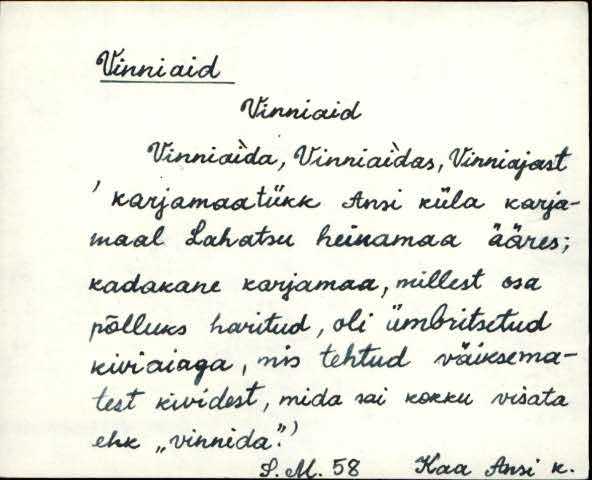 Vinniaid
Vinniaid
Vinniaìda, Vinniaìdas, Vinniajast
' karjamaatükk Ansi küla karja-
maal Lahatsu heinamaa ääres;
kadakane karjamaa, millest osa
põlluks haritud, oli ümbritsetud
kiviaiaga, mis tehtud väiksema-
test kividest, mida sai kokku visata
ehk „vinnida”.'
S.M. 58 Kaa Ansi k.